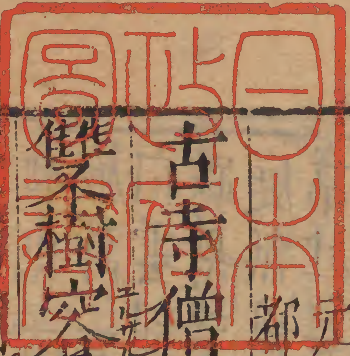 日本
政府
圖書
都
古寺僧
雙樹容